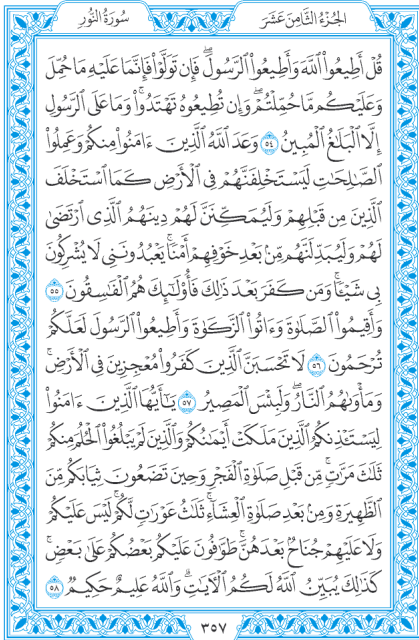 سُورَةُ النُّورِ
الجُزْءُ الثَّامِنَ عَشَرَ
قُلْ أَطِيعُوا۟ ٱللَّهَ وَأَطِيعُوا۟ ٱلرَّسُولَ ۖ فَإِن تَوَلَّوْا۟ فَإِنَّمَا عَلَيْهِ مَا حُمِّلَ
وَعَلَيْكُم مَّا حُمِّلْتُمْ ۖ وَإِن تُطِيعُوهُ تَهْتَدُوا۟ ۚ وَمَا عَلَى ٱلرَّسُولِ
إِلَّا ٱلْبَلَٰغُ ٱلْمُبِينُ ٥٤ وَعَدَ ٱللَّهُ ٱلَّذِينَ ءَامَنُوا۟ مِنكُمْ وَعَمِلُوا۟
ٱلصَّٰلِحَٰتِ لَيَسْتَخْلِفَنَّهُمْ فِى ٱلْأَرْضِ كَمَا ٱسْتَخْلَفَ
ٱلَّذِينَ مِن قَبْلِهِمْ وَلَيُمَكِّنَنَّ لَهُمْ دِينَهُمُ ٱلَّذِى ٱرْتَضَىٰ
لَهُمْ وَلَيُبَدِّلَنَّهُم مِّنۢ بَعْدِ خَوْفِهِمْ أَمْنًا ۚ يَعْبُدُونَنِى لَا يُشْرِكُونَ
بِى شَيْـًٔا ۚ وَمَن كَفَرَ بَعْدَ ذَٰلِكَ فَأُو۟لَٰٓئِكَ هُمُ ٱلْفَٰسِقُونَ ٥٥
وَأَقِيمُوا۟ ٱلصَّلَوٰةَ وَءَاتُوا۟ ٱلزَّكَوٰةَ وَأَطِيعُوا۟ ٱلرَّسُولَ لَعَلَّكُمْ
تُرْحَمُونَ ٥٦ لَا تَحْسَبَنَّ ٱلَّذِينَ كَفَرُوا۟ مُعْجِزِينَ فِى ٱلْأَرْضِ ۚ
وَمَأْوَىٰهُمُ ٱلنَّارُ ۖ وَلَبِئْسَ ٱلْمَصِيرُ ٥٧ يَٰٓأَيُّهَا ٱلَّذِينَ ءَامَنُوا۟
لِيَسْتَـْٔذِنكُمُ ٱلَّذِينَ مَلَكَتْ أَيْمَٰنُكُمْ وَٱلَّذِينَ لَمْ يَبْلُغُوا۟ ٱلْحُلُمَ مِنكُمْ
ثَلَٰثَ مَرَّٰتٍ ۚ مِّن قَبْلِ صَلَوٰةِ ٱلْفَجْرِ وَحِينَ تَضَعُونَ ثِيَابَكُم مِّنَ
ٱلظَّهِيرَةِ وَمِنۢ بَعْدِ صَلَوٰةِ ٱلْعِشَآءِ ۚ ثَلَٰثُ عَوْرَٰتٍ لَّكُمْ ۚ لَيْسَ عَلَيْكُمْ
وَلَا عَلَيْهِمْ جُنَاحٌۢ بَعْدَهُنَّ ۚ طَوَّٰفُونَ عَلَيْكُم بَعْضُكُمْ عَلَىٰ بَعْضٍ ۚ
كَذَٰلِكَ يُبَيِّنُ ٱللَّهُ لَكُمُ ٱلْءَايَٰتِ ۗ وَٱللَّهُ عَلِيمٌ حَكِيمٌ ٥٨
٣٥٧